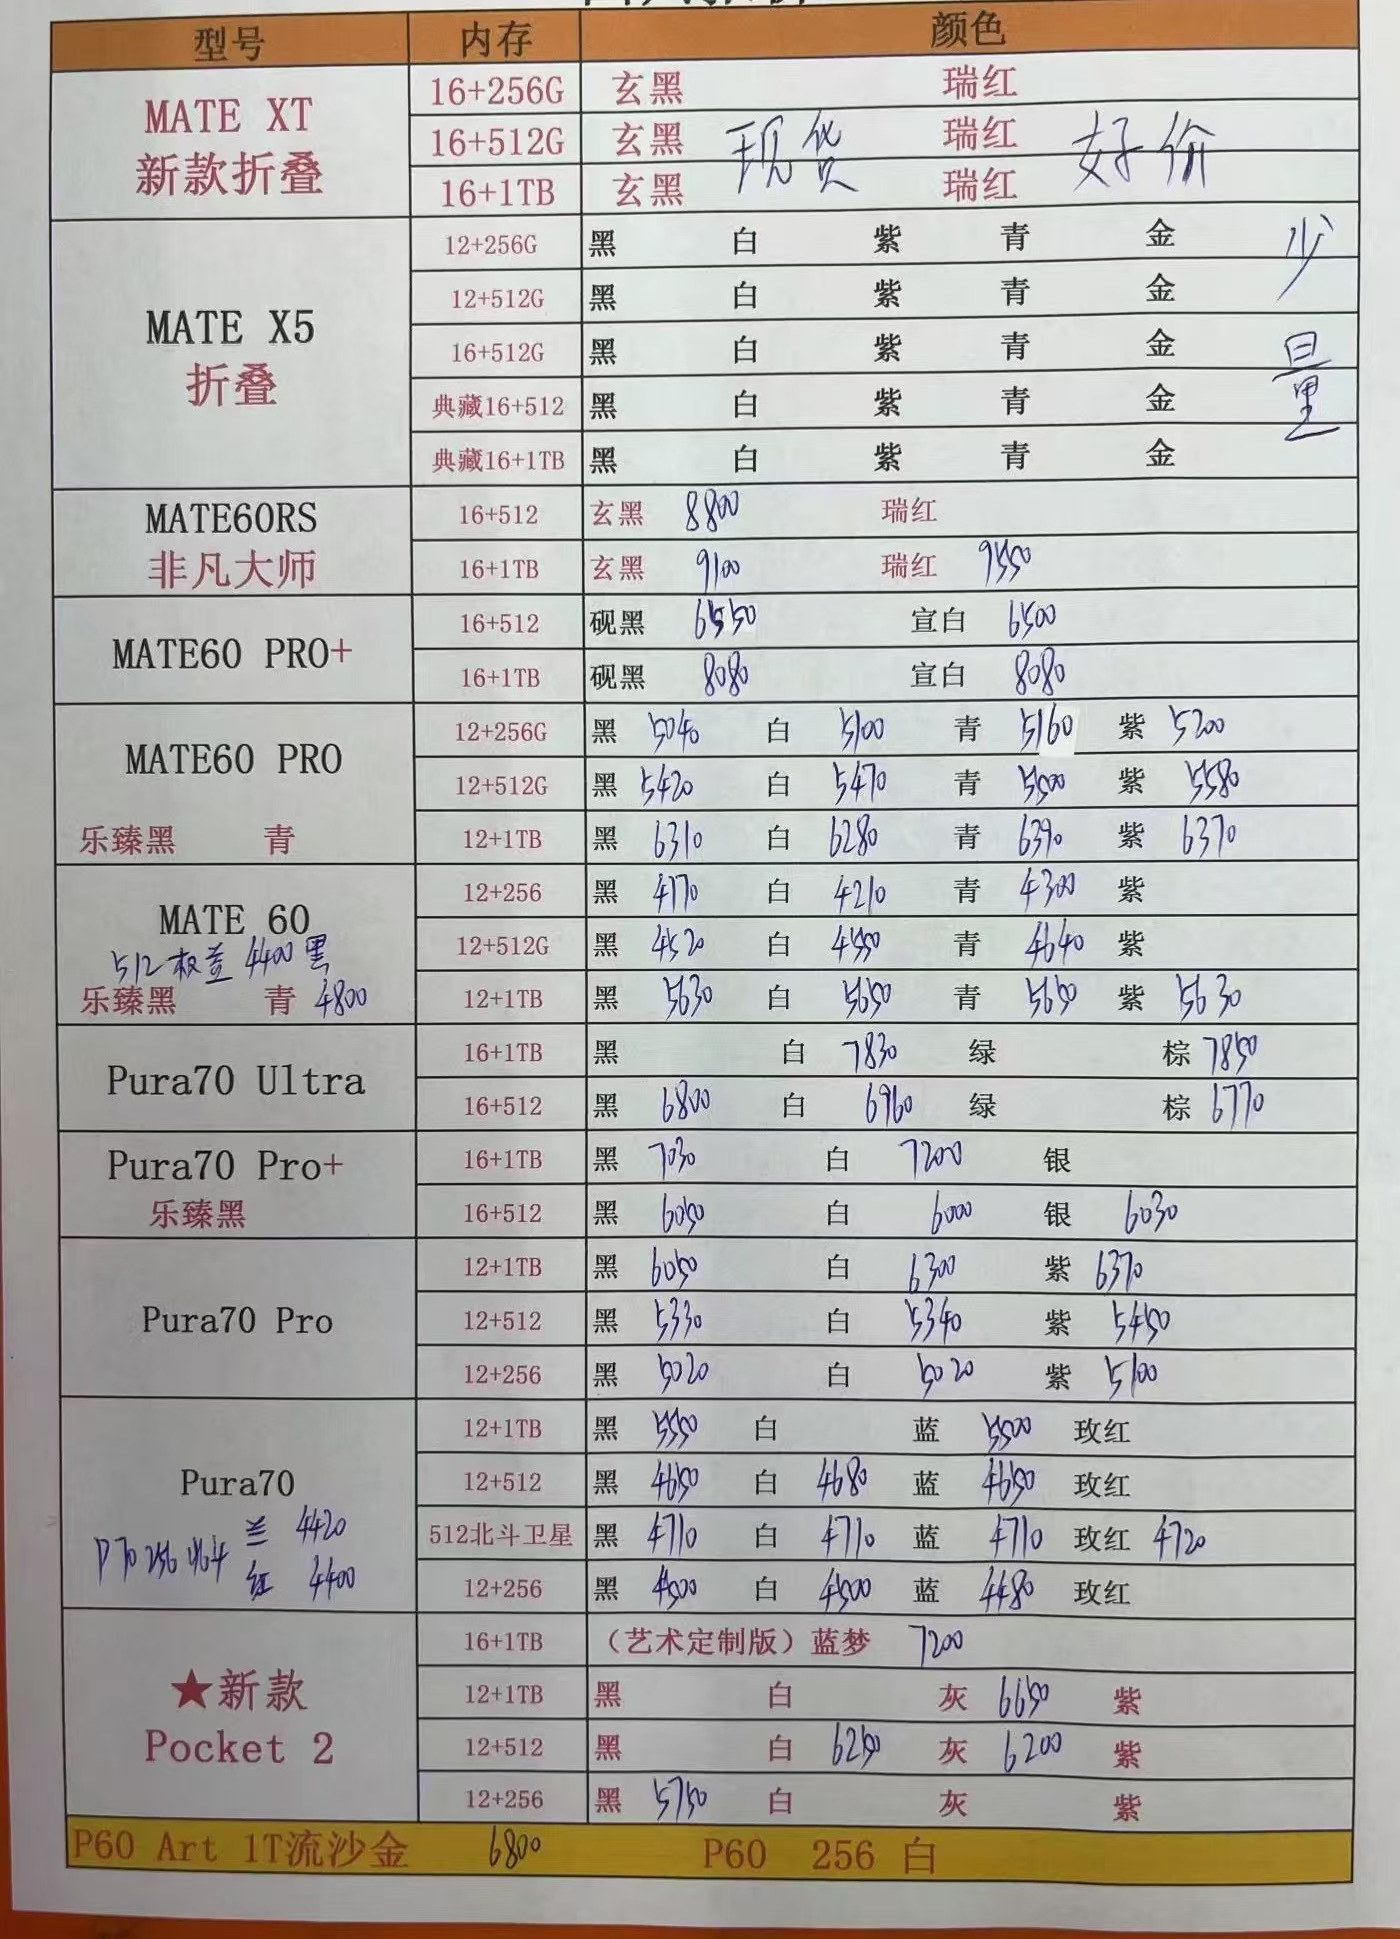 型号 内存 颜色
MATE XT
新款折叠
16+256G 玄黑 瑞红
16+512G 玄黑 现货 瑞红 好价
16+1TB 玄黑 瑞红
MATE X5
折叠
12+256G 黑 白 紫 青 金
少量
12+512G 黑 白 紫 青 金
16+512G 黑 白 紫 青 金
典藏16+512 黑 白 紫 青 金
典藏16+1TB 黑 白 紫 青 金
MATE60RS
非凡大师
16+512 玄黑 8800 瑞红
16+1TB 玄黑 9100 瑞红 9550
MATE60 PRO+
16+512 砚黑 6550 宣白 6500
16+1TB 砚黑 8080 宣白 8080
MATE60 PRO
乐臻黑 青
12+256G 黑 5040 白 5100 青 5160 紫 5200
12+512G 黑 5420 白 5470 青 5500 紫 5580
12+1TB 黑 6310 白 6280 青 6390 紫 6370
MATE 60
512 4400 黑
乐臻黑 青 4800
12+256 黑 4170 白 4210 青 4300 紫
12+512G 黑 4520 白 4550 青 4640 紫
12+1TB 黑 5630 白 5650 青 5650 紫 5630
Pura70 Ultra
16+1TB 黑 白 7830 绿 棕 7850
16+512 黑 6800 白 6960 绿 棕 6770
Pura70 Pro+
乐臻黑
16+1TB 黑 7030 白 7200 银
16+512 黑 6050 白 6000 银 6030
Pura70 Pro
12+1TB 黑 6050 白 6300 紫 6370
12+512 黑 5330 白 5340 紫 5450
12+256 黑 5020 白 5020 紫 5100
Pura70
P70 256 北斗 兰 4420
红 4400
12+1TB 黑 5550 白 蓝 5500 玫红
12+512 黑 4650 白 4680 蓝 4650 玫红
512北斗卫星 黑 4710 白 4710 蓝 4710 玫红 4720
12+256 黑 4500 白 4500 蓝 4480 玫红
★新款
Pocket 2
16+1TB （艺术定制版）蓝梦 7200
12+1TB 黑 白 灰 6650 紫
12+512 黑 白 6250 灰 6200 紫
12+256 黑 5750 白 灰 紫
P60 Art 1T流沙金 6800 P60 256 白